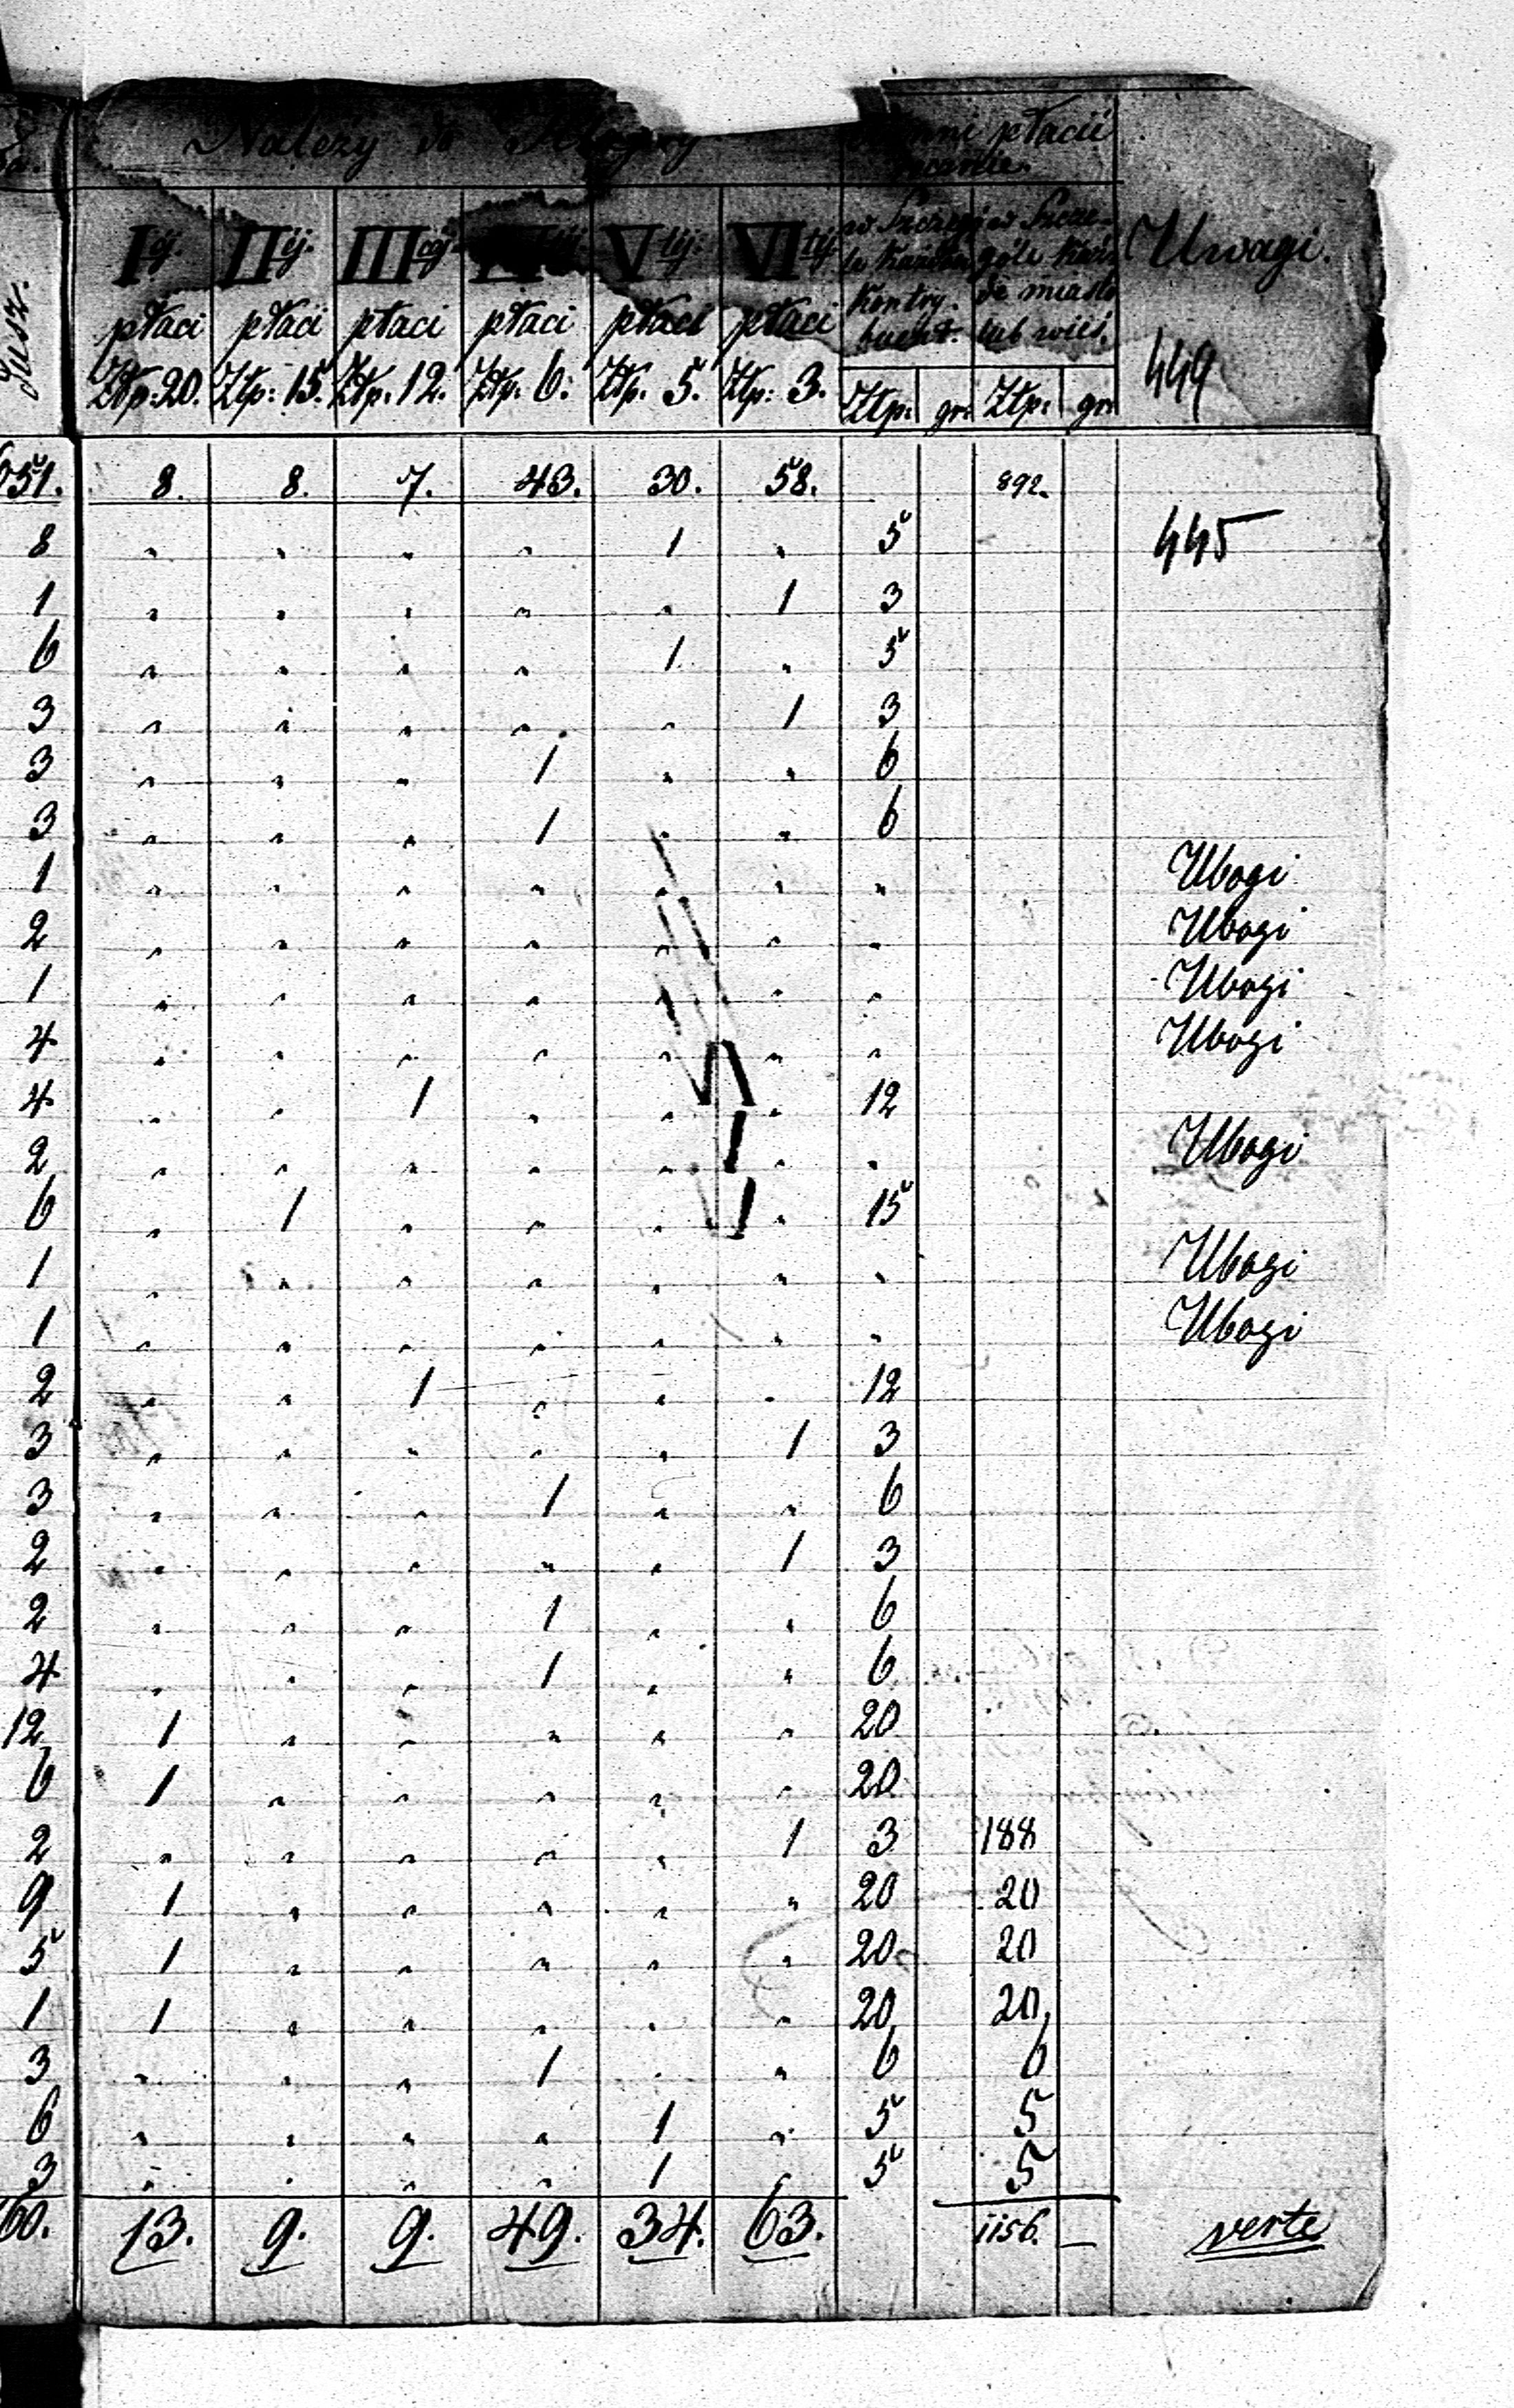 Należy do
płacić
Dusz.
I ej. II ej. III ciéj. V téj. VI téj. w Szczegó w Szcze- Uwagi.
le Każden góle Każ-
płaci płaci płaci płaci płaci płaci Kontry- de miasto
buent. lub wieś.
Ztp: 20. Ztp: 15. Ztp: 12. Ztp: 6. Ztp: 5. Ztp: 3. Ztp: gr: Ztp: gr: 449
651. 8. 8. 7. 43. 30. 58. 892.
8 " " " " 1 " 5 445
1 " " " " " 1 3
6 " " " " 1 " 5
3 " " " " " 1 3
3 " " " 1 " " 6
3 " " " 1 " " 6
1 " " " " " " " Ubogi
2 " " " " " " " Ubogi
1 " " " " " " " Ubogi
4 " " " " " " " Ubogi
4 " " 1 " " " 12
2 " " " " " " " Ubogi
6 " 1 " " " " 15
1 " " " " " " " Ubogi
1 " " " " " " " Ubogi
2 " " 1 " " " 12
3 " " " " " 1 3
3 " " " 1 " " 6
2 " " " " " 1 3
2 " " " 1 " " 6
4 " " " 1 " " 6
12 1 " " " " " 20
6 1 " " " " " 20
2 " " " " " 1 3 188
9 1 " " " " " 20 20
5 1 " " " " " 20 20
1 1 " " " " " 20 20
3 " " " 1 " " 6 6
6 " " " " 1 " 5 5
3 " " " " 1 " 5 5
60. 13. 9. 9. 49. 34. 63. 1156. — verte